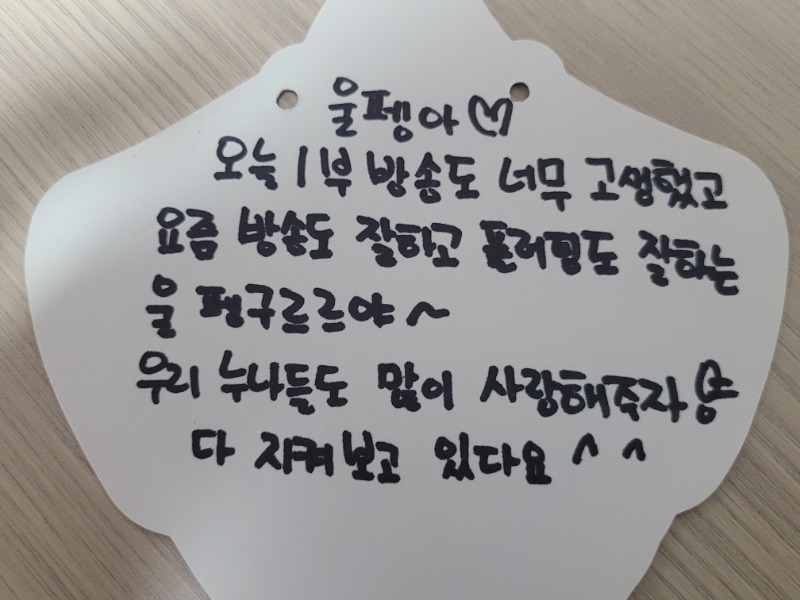 울펭아♡
오늘 1부 방송도 너무 고생했고
요즘 방송도 잘하고 플러팅도 잘하는
울 펭구르르야~
우리 누나들도 많이 사랑해주자
다 지켜보고 있다요 ^^